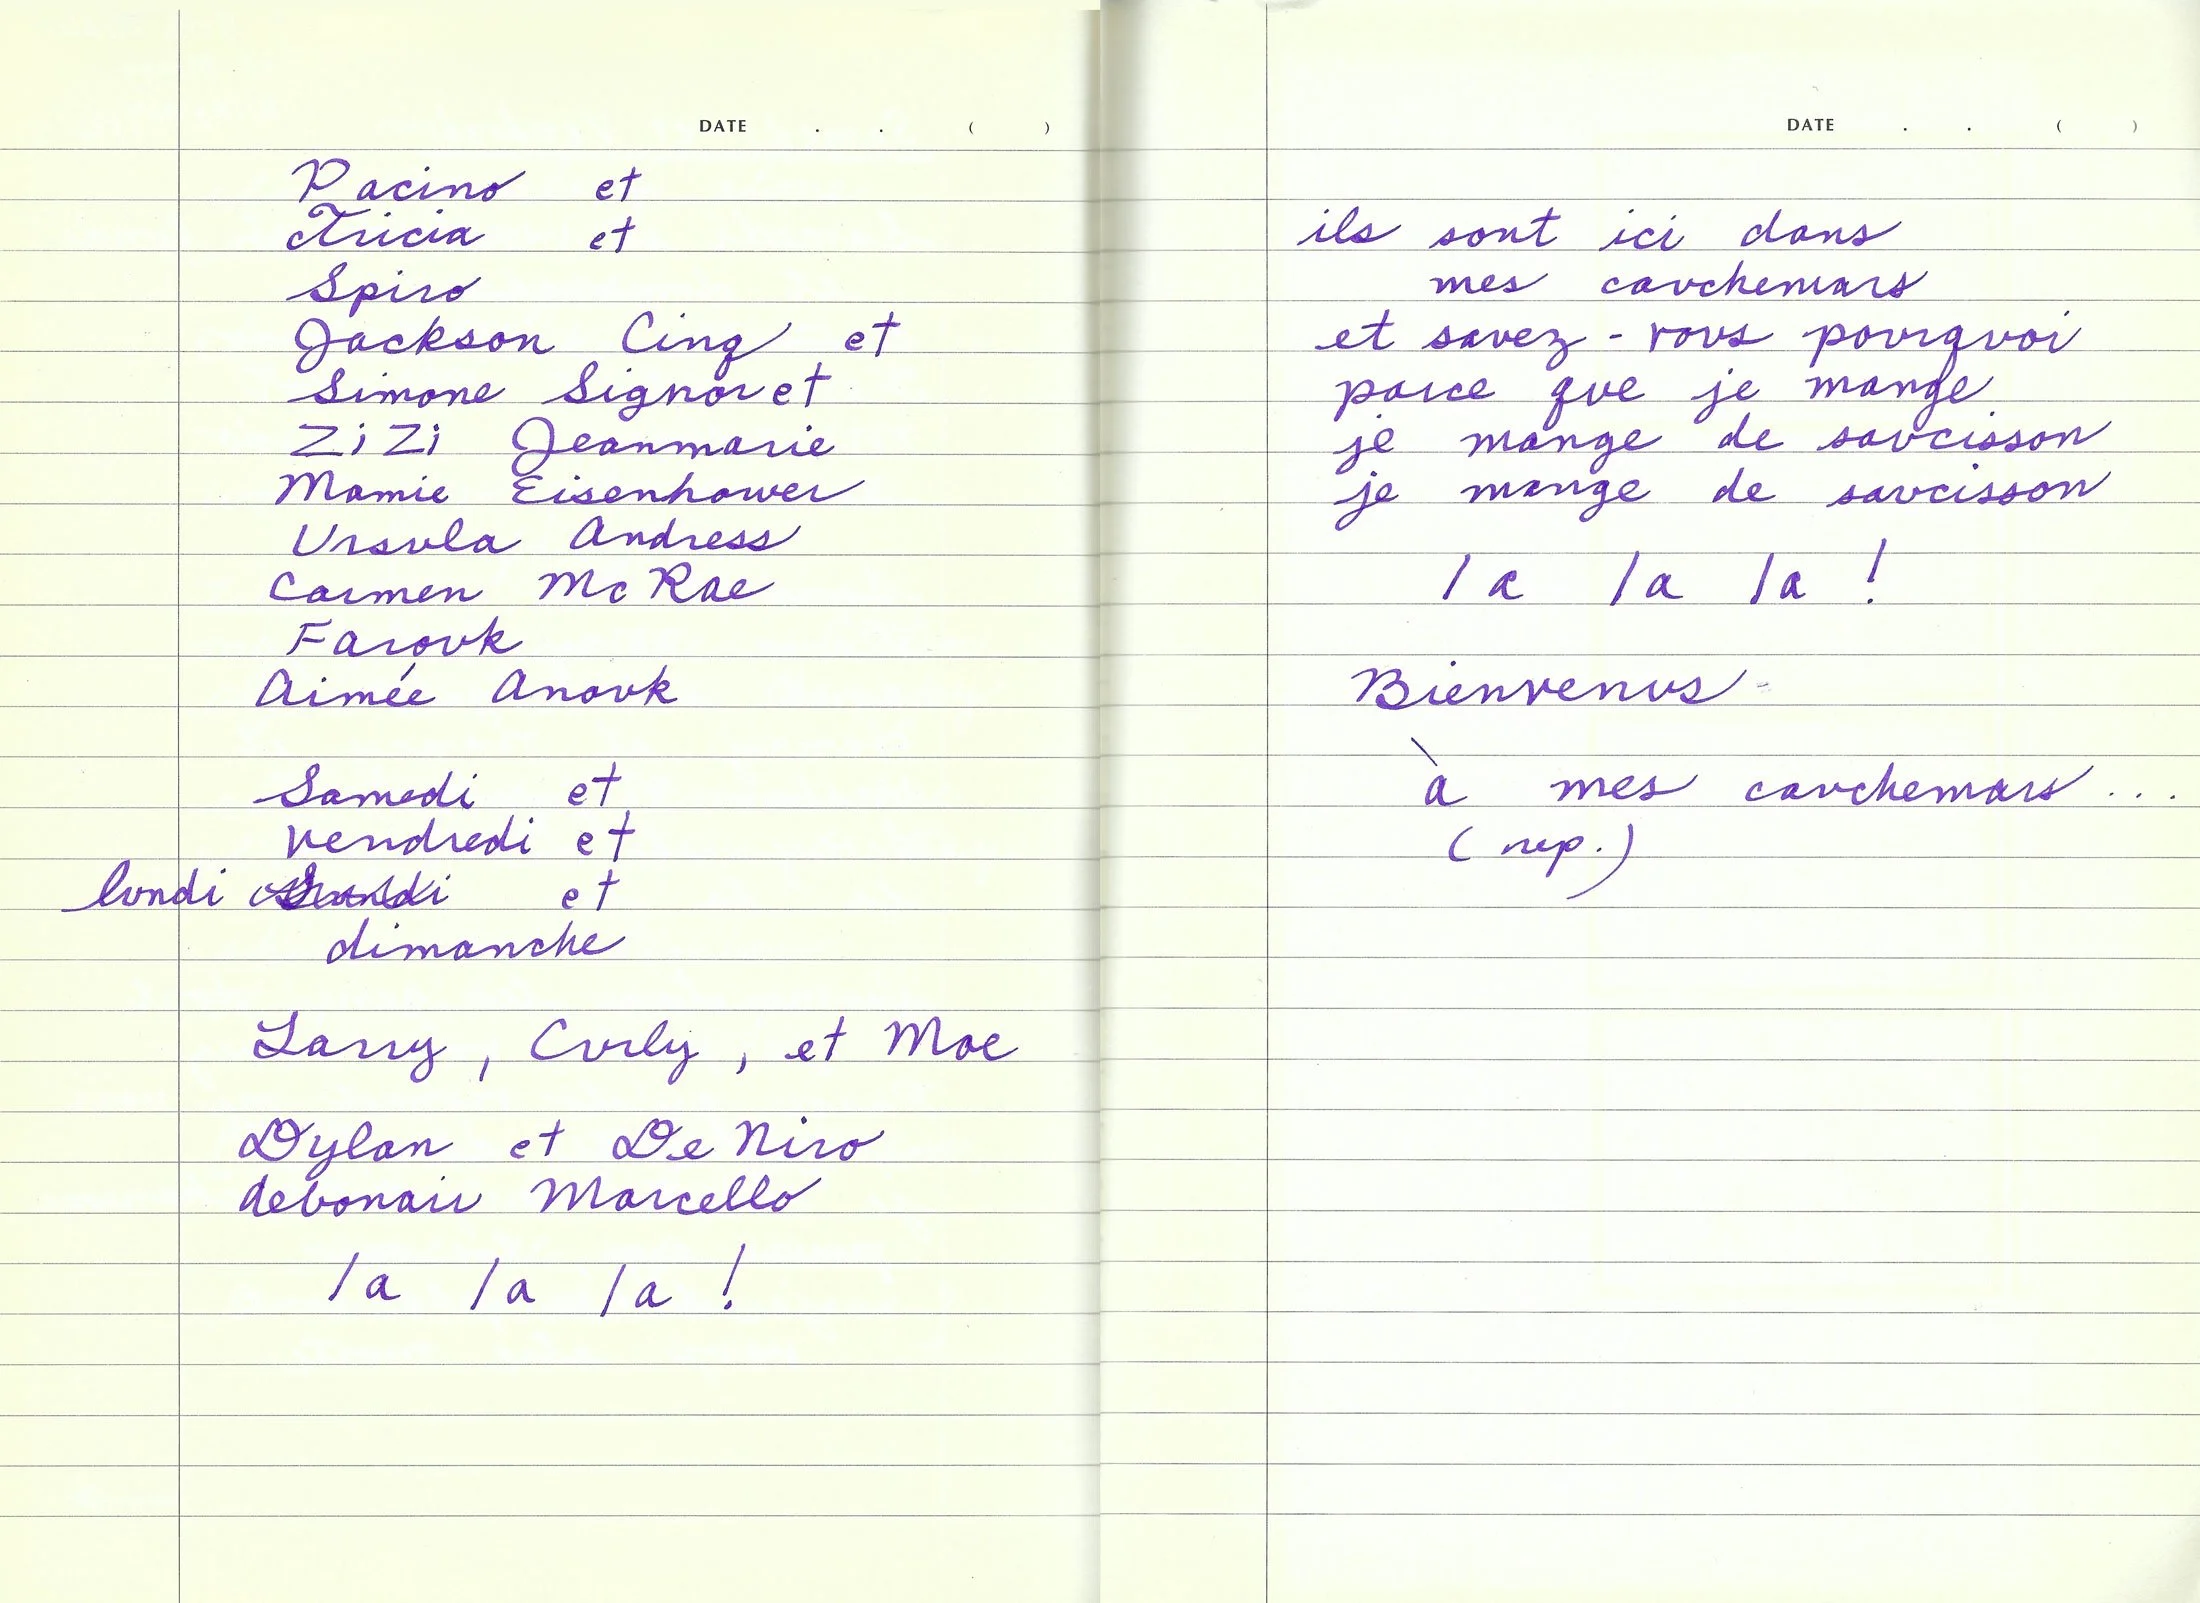 DATE . . ( )
Pacino et
Tricia et
Spiro
Jackson Cinq et
Simone Signoret
ZiZi Jeanmarie
Mamie Eisenhower
Ursula Andress
Carmen McRae
Farouk
Aimée Anouk
Samedi et
vendredi et
lundi et
dimanche
Larry, Curly, et Moe
Dylan et De Niro
debonair Marcello
la la la !
DATE . . ( )
ils sont ici dans
mes cauchemars
et savez-vous pourquoi
parce que je mange
je mange de saucisson
je mange de saucisson
la la la !
Bienvenus
à mes cauchemars ...
(rep.)